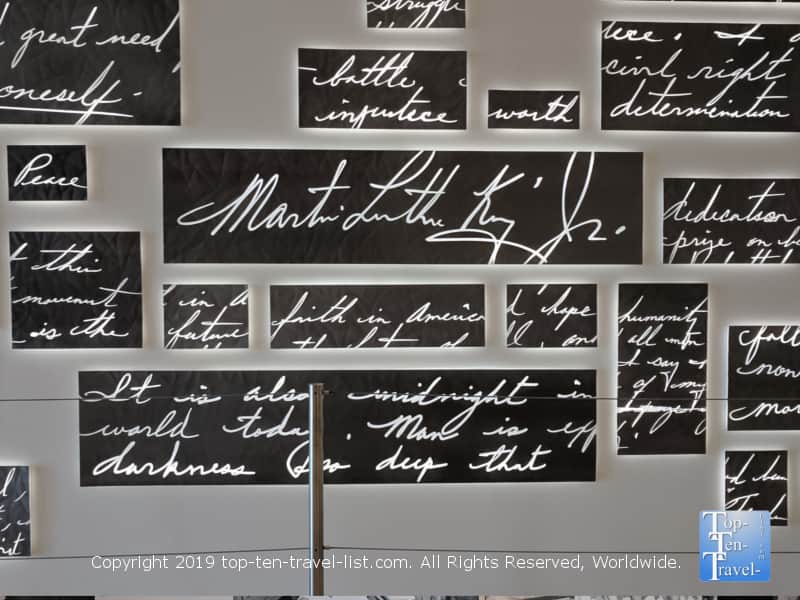 struggle
great need
oneself.
battle
injustice
worth
civil right
determination
Peace
Martin Luther King Jr.
dedication
prize on
t this
movement
is the
in a
future
faith in America
hope
and
humanity
all men
I say
of
It is also midnight in
world today. Man is
darkness so deep that
Copyright 2019 top-ten-travel-list.com. All Rights Reserved, Worldwide.
Top-
Ten-
Travel-